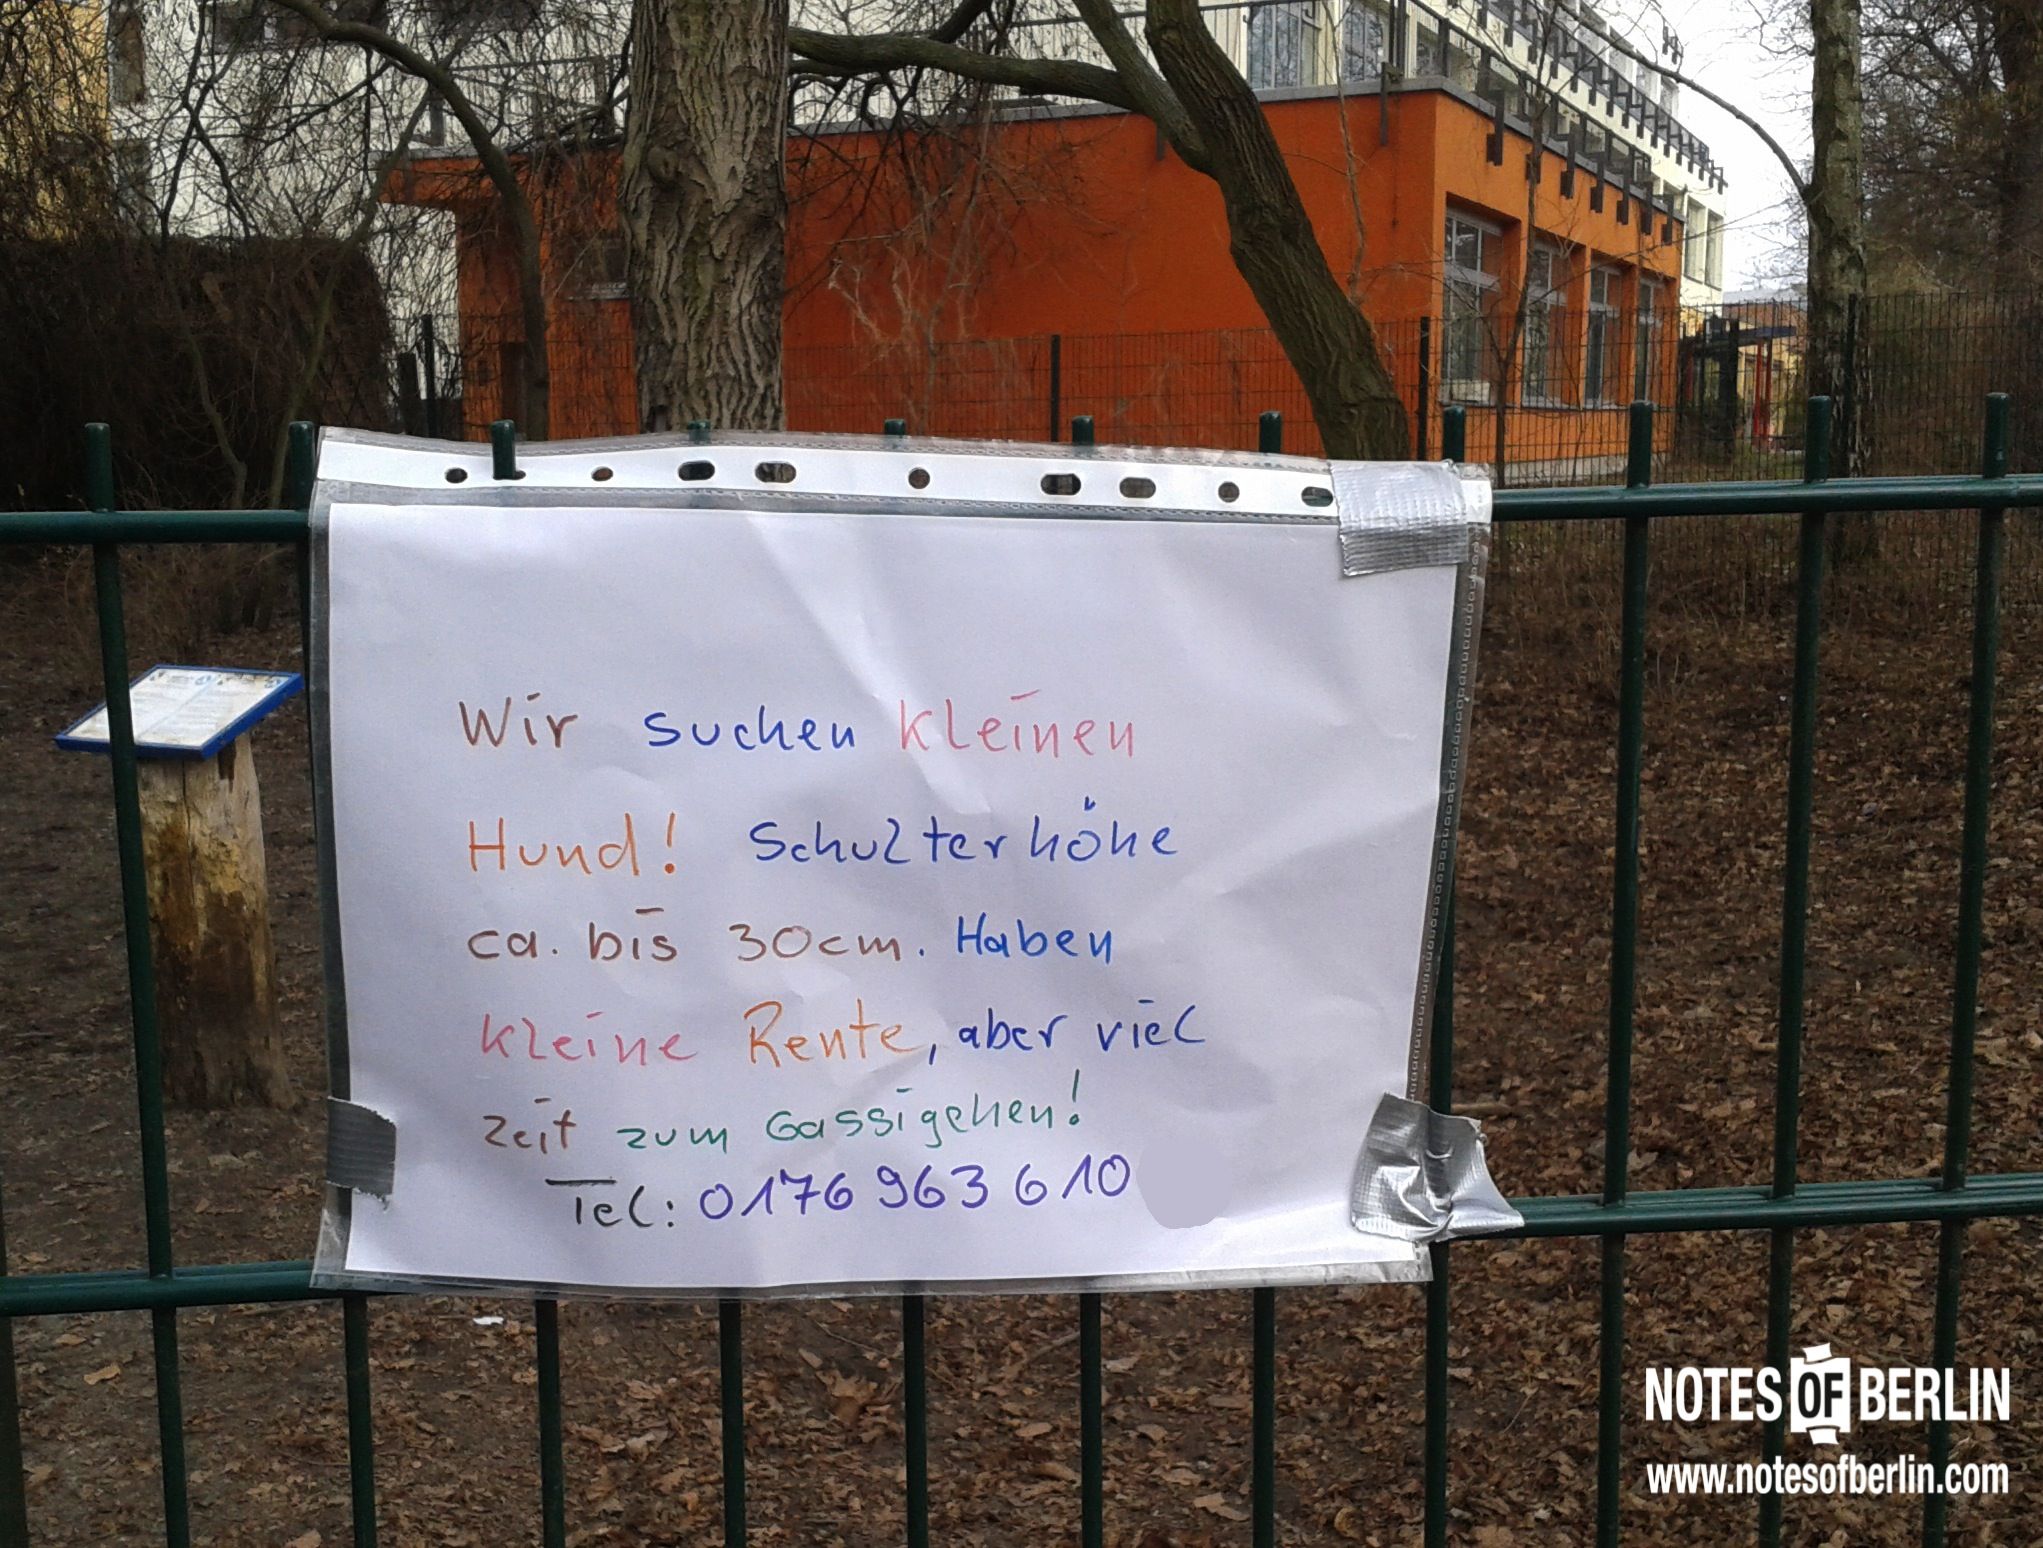 Wir suchen kleinen
Hund! Schulterhöhe
ca. bis 30cm. Haben
kleine Rente, aber viel
Zeit zum Gassigehen!
Tel: 0176 963 610
NOTES OF BERLIN
www.notesofberlin.com